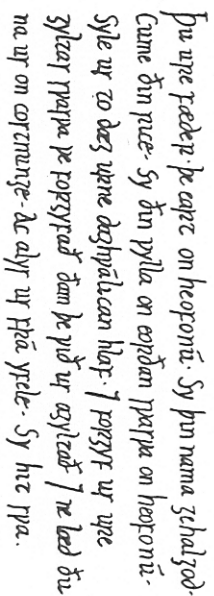 Þu ure fæder· þe eart on heofonū. Sy þin nama gehalgod·
Cume ðin rice· Sy ðin ƿylla on eorðan sƿasƿa on heofonū·
Syle us to dæg urne dæghƿālican hlaf· ⁊ forgyf us ure
gyltas sƿasƿa ƿe forgyfað ðam þe ƿið us agyltað ⁊ ne læd ðu
na us on costnunge· Ac alys us frā yfele· Sy hit sƿa.